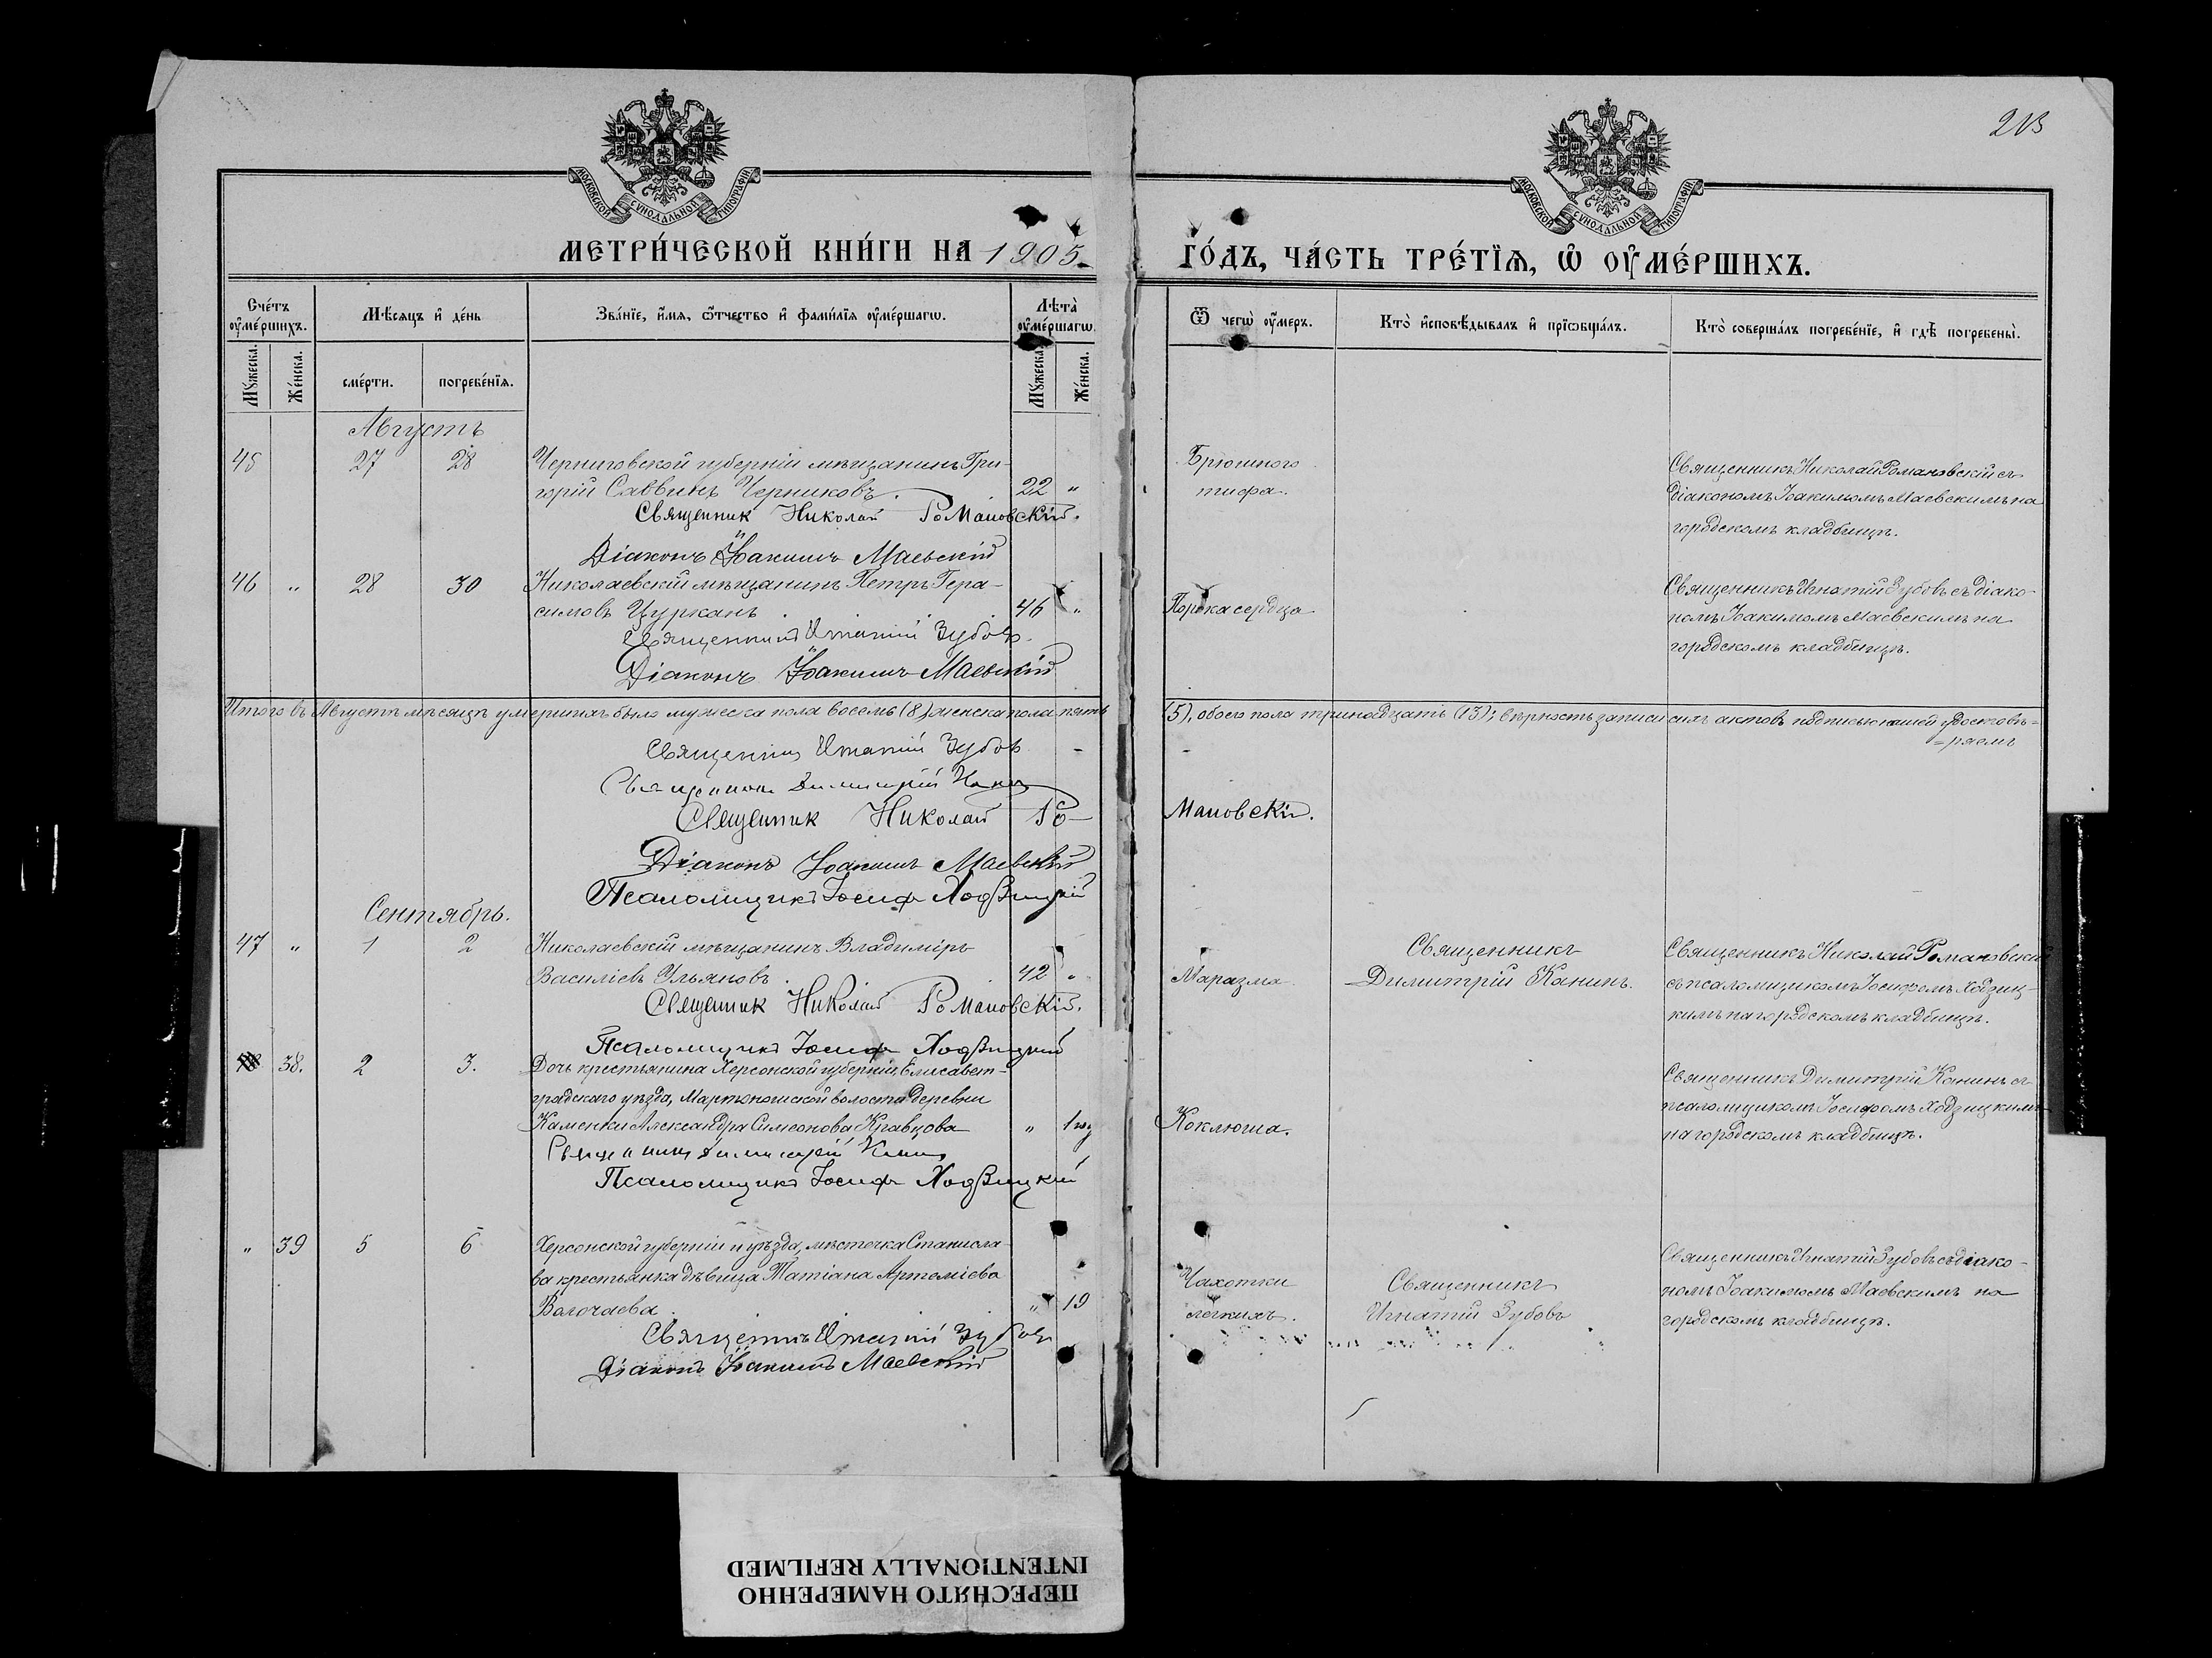 213
МОСКОВСКОЙ СѴНОДАЛЬНОЙ ТИПОГРАФІИ
МОСКОВСКОЙ СѴНОДАЛЬНОЙ ТИПОГРАФІИ
МЕТРИ́ЧЕСКОЙ КНИ́ГИ НА 1905
ГО́ДЪ, ЧА́СТЬ ТРЕ́ТЇѦ, Ѡ҆ ОУ҆МЕ́РШИХЪ.
Сче́тъ оу҆ме́ршихъ.
Мѣ́сяцъ и҆ де́нь
Зва́нїе, и҆́мя, ѻ҆́тчество и҆ фами́лїя оу҆ме́ршагѡ.
Лѣ́та оу҆ме́ршагѡ.
Мꙋ́жеска.
Же́нска.
сме́рти.
погребе́нїя.
Мꙋ́жеска.
Же́нска.
Ѿ чегѡ̀ оу҆́меръ.
Кто̀ и҆сповѣ́дывалъ и҆ прїѡбща́лъ.
Кто̀ соверша́лъ погребе́нїе, и҆ гдѣ̀ погребены̀.
Августъ
45 27 28 Черниговской губерніи мѣщанинъ Гри-
горій Саввинъ Черниковъ. 22 "
Священник Николай Романовскій.
Діаконъ Іоакимъ Маевскій
Брюшного
тифа.
Священникъ Николай Романовскій съ
діакономъ Іоакимомъ Маевскимъ на
городскомъ кладбищѣ.
46 " 28 30 Николаевскій мѣщанинъ Петръ Гера-
симовъ Цурканъ 46 "
Священникъ Игнатій Зубовъ.
Діаконъ Іоакимъ Маевскій
Порока сердца
Священникъ Игнатій Зубовъ съ діако-
номъ Іоакимомъ Маевскимъ на
городскомъ кладбищѣ.
Итого въ Августѣ мѣсяцѣ умершихъ было мужеска пола восемь (8), женска пола пять
(5), обоего пола тринадцать (13); вѣрность записи сихъ актовъ подписью нашей удостовѣ=
=ряемъ
Священникъ Игнатій Зубовъ
Священникъ Димитрій Канинъ
Священник Николай Ро-
мановскій.
Діаконъ Іоакимъ Маевскій
Псаломщикъ Іосифъ Ходзицкій
Сентябрь.
47 " 1 2 Николаевскій мѣщанинъ Владиміръ
Василіевъ Ульяновъ 42 "
Священник Николай Романовскій.
Псаломщикъ Іосифъ Ходзицкій
Маразма
Священникъ
Димитрій Канинъ.
Священникъ Николай Романовскій
съ псаломщикомъ Іосифомъ Ходзиц-
кимъ на городскомъ кладбищѣ.
38. 2 3. Дочь крестьянина Херсонской губерніи, Елисавет-
градскаго уѣзда, Мартоношской волости деревни
Каменки Александра Симеонова Кравцова " 1 год
Священникъ Димитрій Канинъ
Псаломщикъ Іосифъ Ходзицкій
Коклюша.
Священникъ Димитрій Канинъ съ
псаломщикомъ Іосифомъ Ходзицкимъ
на городскомъ кладбищѣ.
" 39 5 6 Херсонской губерніи и уѣзда, мѣстечка Станисла-
ва крестьянка дѣвица Татіана Артеміева
Волочаева " 19
Священникъ Игнатій Зубовъ
Діаконъ Іоакимъ Маевскій
Чахотки
легкихъ.
Священникъ
Игнатій Зубовъ
Священникъ Игнатій Зубовъ съ діако-
номъ Іоакимомъ Маевскимъ на
городскомъ кладбищѣ.
ПЕРЕСНЯТО НАМЕРЕННО
INTENTIONALLY REFILMED